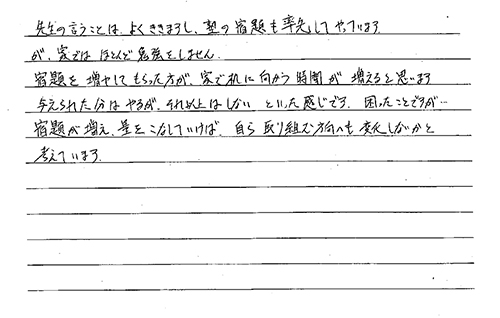 先生の言うことは、よくききますし、塾の宿題も率先してやっています
が、家では ほとんど勉強をしません。
宿題を増やしてもらった方が、家で机に向かう時間が増えると思います
与えられた分はやるが、それ以上はしない といった感じです。困ったことですが…
宿題が増え、量をこなしていけば、自ら取り組む方向へも変化しないかと
考えています。